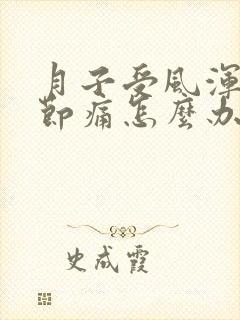 月子受風渾
節痛怎麼办
史成霞